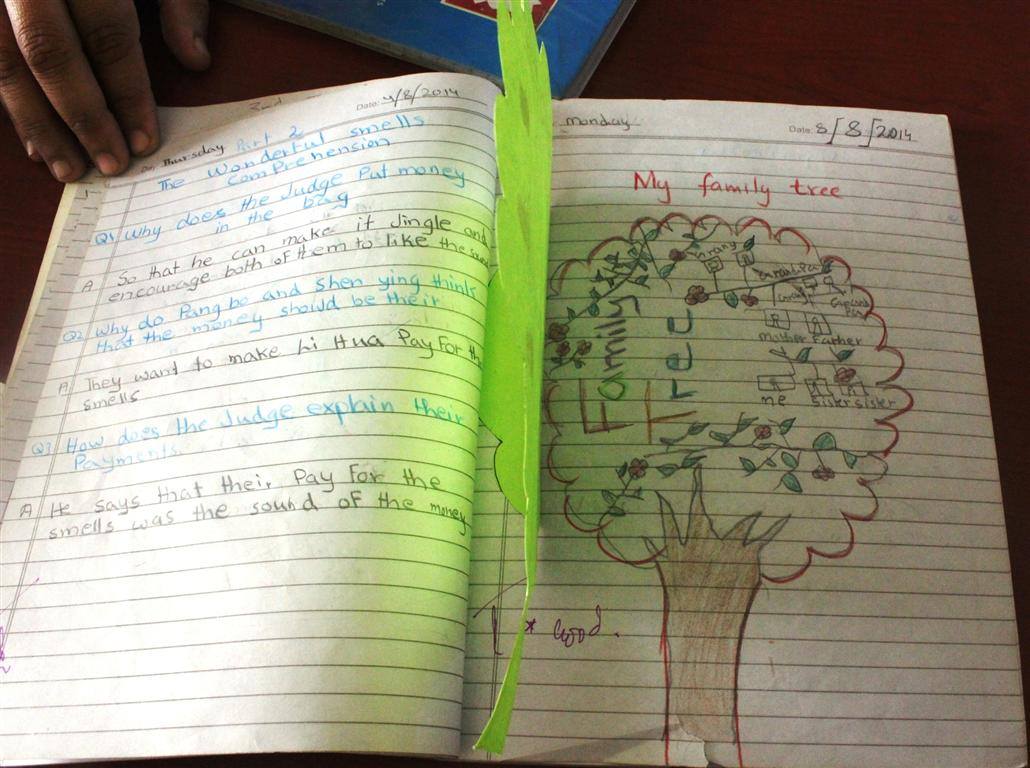 Date: 4/8/2014
Thursday Part 2
The Wonderful smells
comprehension
Q1 Why does the Judge Put money
in the bag
A So that he can make it Jingle and
encourage both of them to like the
Q2 Why do Pang bo and Shen ying think
that the money showd be their
A They want to make Li Hua Pay For the
smells
Q3 How does the Judge explain their
Payments
A He says that their Pay For the
smells was the sound of the money
monday
Date: 8/8/2014
My family tree
Family
Tree
mother Father
me sister sister
* Good.